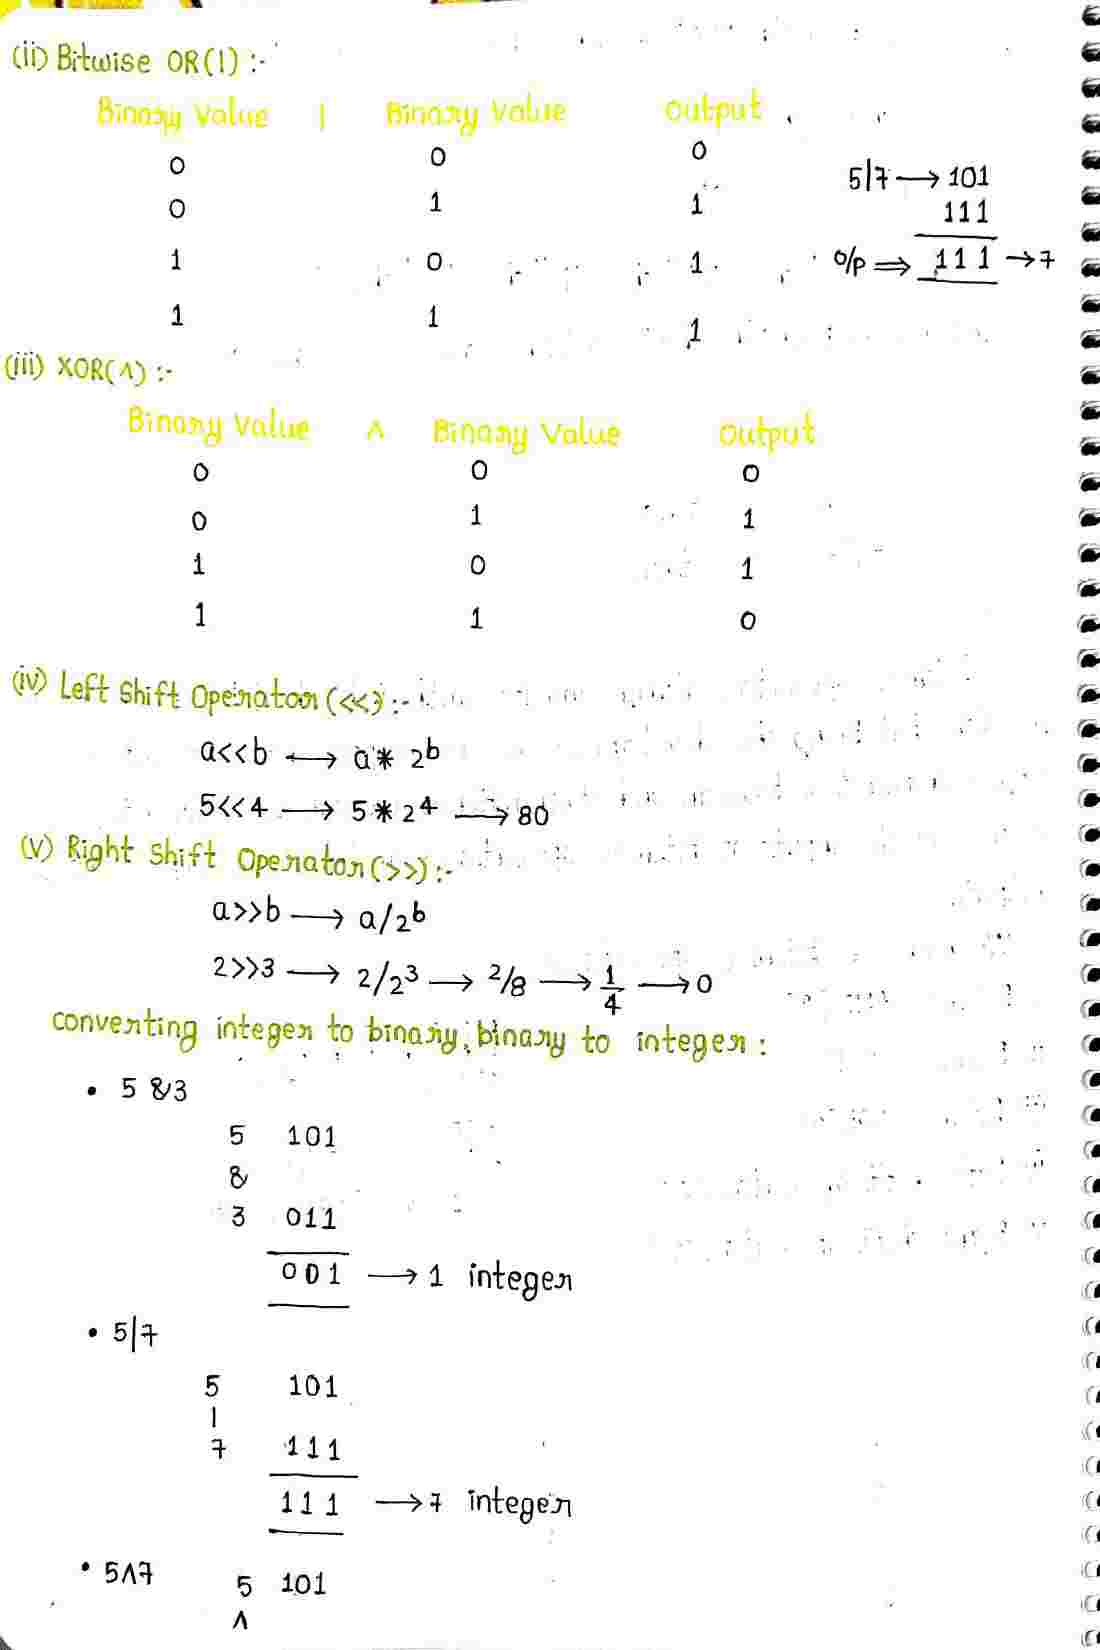 (ii) Bitwise OR(|) :-
Binary Value | Binary Value Output
0 0 0
0 1 1
1 0 1
1 1 1
5|7 → 101
111
o/p ⇒ 111 → 7
(iii) XOR(^) :-
Binary Value ^ Binary Value Output
0 0 0
0 1 1
1 0 1
1 1 0
(iv) Left Shift Operator (<<) :-
a<<b ⟷ a * 2^b
5<<4 → 5 * 2^4 → 80
(v) Right Shift Operator (>>) :-
a>>b → a/2^b
2>>3 → 2/2^3 → 2/8 → 1/4 → 0
converting integer to binary, binary to integer :
• 5 &3
5 101
&
3 011
001 → 1 integer
• 5|7
5 101
|
7 111
111 → 7 integer
• 5^7 5 101
^